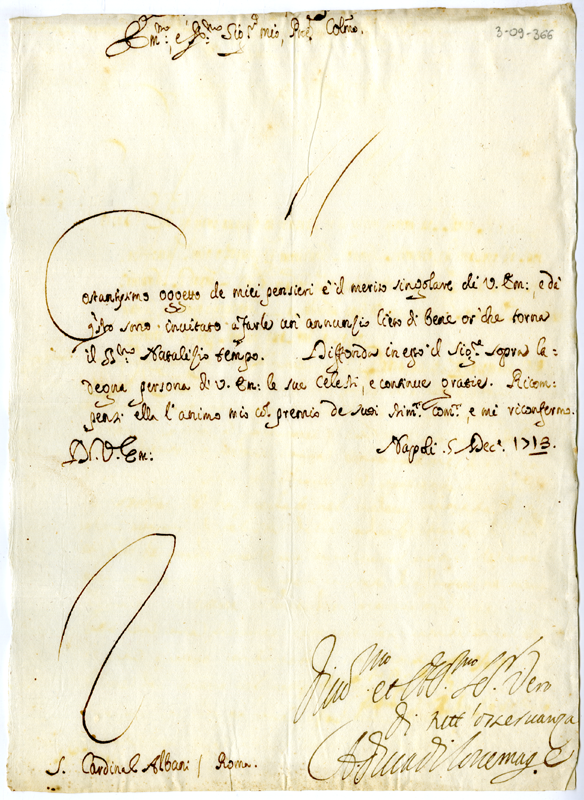 3-09-366
Em:mo, e R:mo Sig:r mio, Pne Colmo.
Costantissimo oggetto de miei pensieri è il merito singolare di V. Em:, e di
q̃sto sono invitato a farle un' annunzio lieto di bene or' che torna
il SS:mo Natalizio tempo. Diffonda in esso il Sig.re sopra la
degna persona di V. Em: le sue Celesti, e continue gratie. Ricom=
pensi ella l'animo mio col premio de suoi stim.mi com.di, e mi riconfermo.
Di V. Em:
Napoli 5 Dec.e 1713.
et Obb.mo Se.r Vero
di tutt'osservanza
S. Cardinal Albani / Roma.